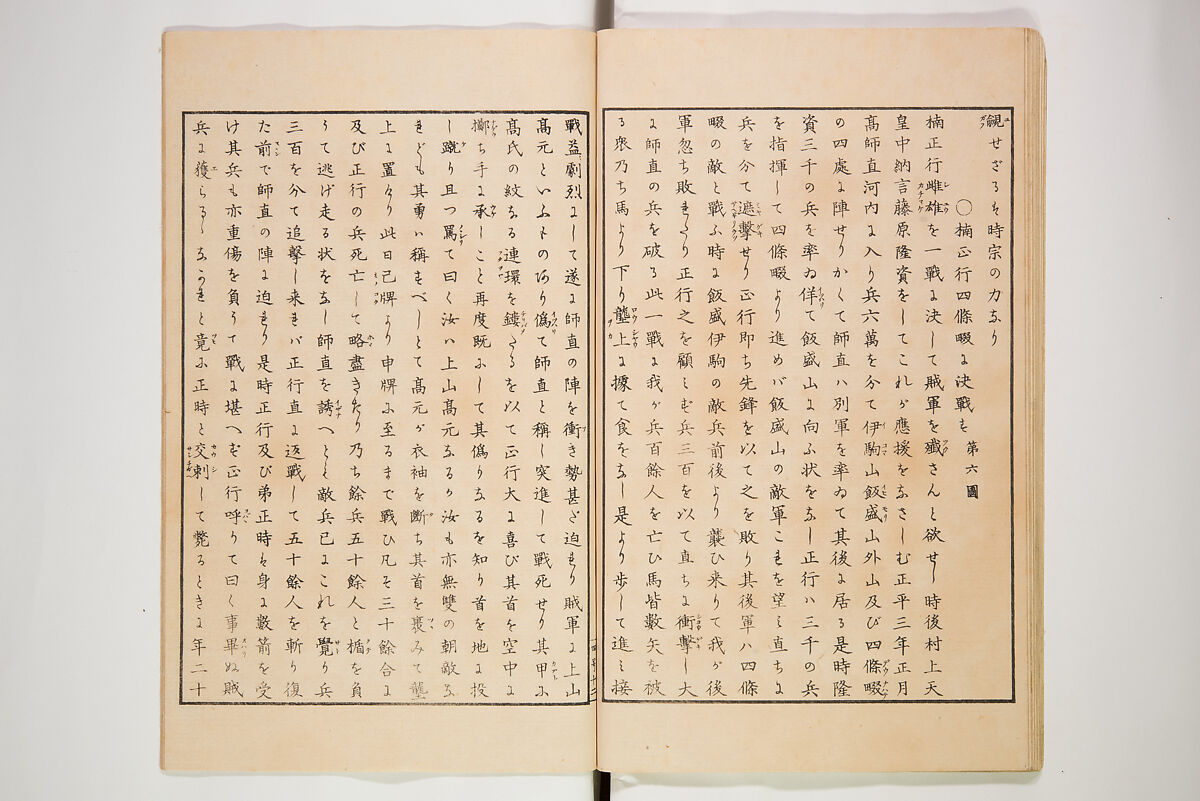 覦せざるは時宗の力なり
〇楠正行四條畷に決戰す 第六圖
楠正行雌雄を一戰に決して賊軍を殲さんと欲せし時後村上天
皇中納言藤原隆資をしてこれが應援をなさしむ正平三年正月
髙師直河内に入り兵六萬を分て伊駒山飯盛山外山及び四條畷
の四處に陣せりかくて師直ハ別軍を率ゐて其後に居る是時隆
資三千の兵を率ゐ佯て飯盛山に向ふ状をなし正行ハ三千の兵
を指揮して四條畷より進めバ飯盛山の敵軍これを望ミ直ちに
兵を分て遮擊せり正行即ち先鋒を以て之を敗り其後軍ハ四條
畷の敵と戰ふ時に飯盛伊駒の敵兵前後より襲ひ来りて我が後
軍忽ち敗れたり正行之を顧ミず兵三百を以て直ちに衝擊し大
に師直の兵を破る此一戰に我が兵百餘人を亡ひ馬皆數矢を被
る衆乃ち馬より下り壟上に據て食をなし是より歩して進ミ接
戰益劇烈にして遂に師直の陣を衝き勢甚ざ迫れり賊軍に上山
髙元といふもの阿り僞て師直と稱し突進して戰死せり其甲に
髙氏の紋なる連環を鏤たるを以て正行大に喜び其首を空中に
擲ち手に承しこと再度既にして其僞りなるを知り首を地に投
し蹴り且つ罵て曰く汝ハ上山髙元なるか汝も亦無雙の朝敵な
れども其勇ハ稱すべしとて髙元が衣袖を斷ち其首を裹みて壟
上に置けり此日巳牌より申牌に至るまで戰ひ凡そ三十餘合に
及び正行の兵死亡して略盡きたり乃ち餘兵五十餘人と楯を負
うて逃げ走る状をなし師直を誘へども敵兵已にこれを覺り兵
三百を分て追擊し来れバ正行直に返戰して五十餘人を斬り復
た前で師直の陣に迫れり是時正行及び弟正時は身に數箭を受
け其兵も亦重傷を負うて戰に堪へず正行呼りて曰く事畢ぬ賊
兵に獲らるゝなかれと竟に正時と交刺して斃るときに年二十